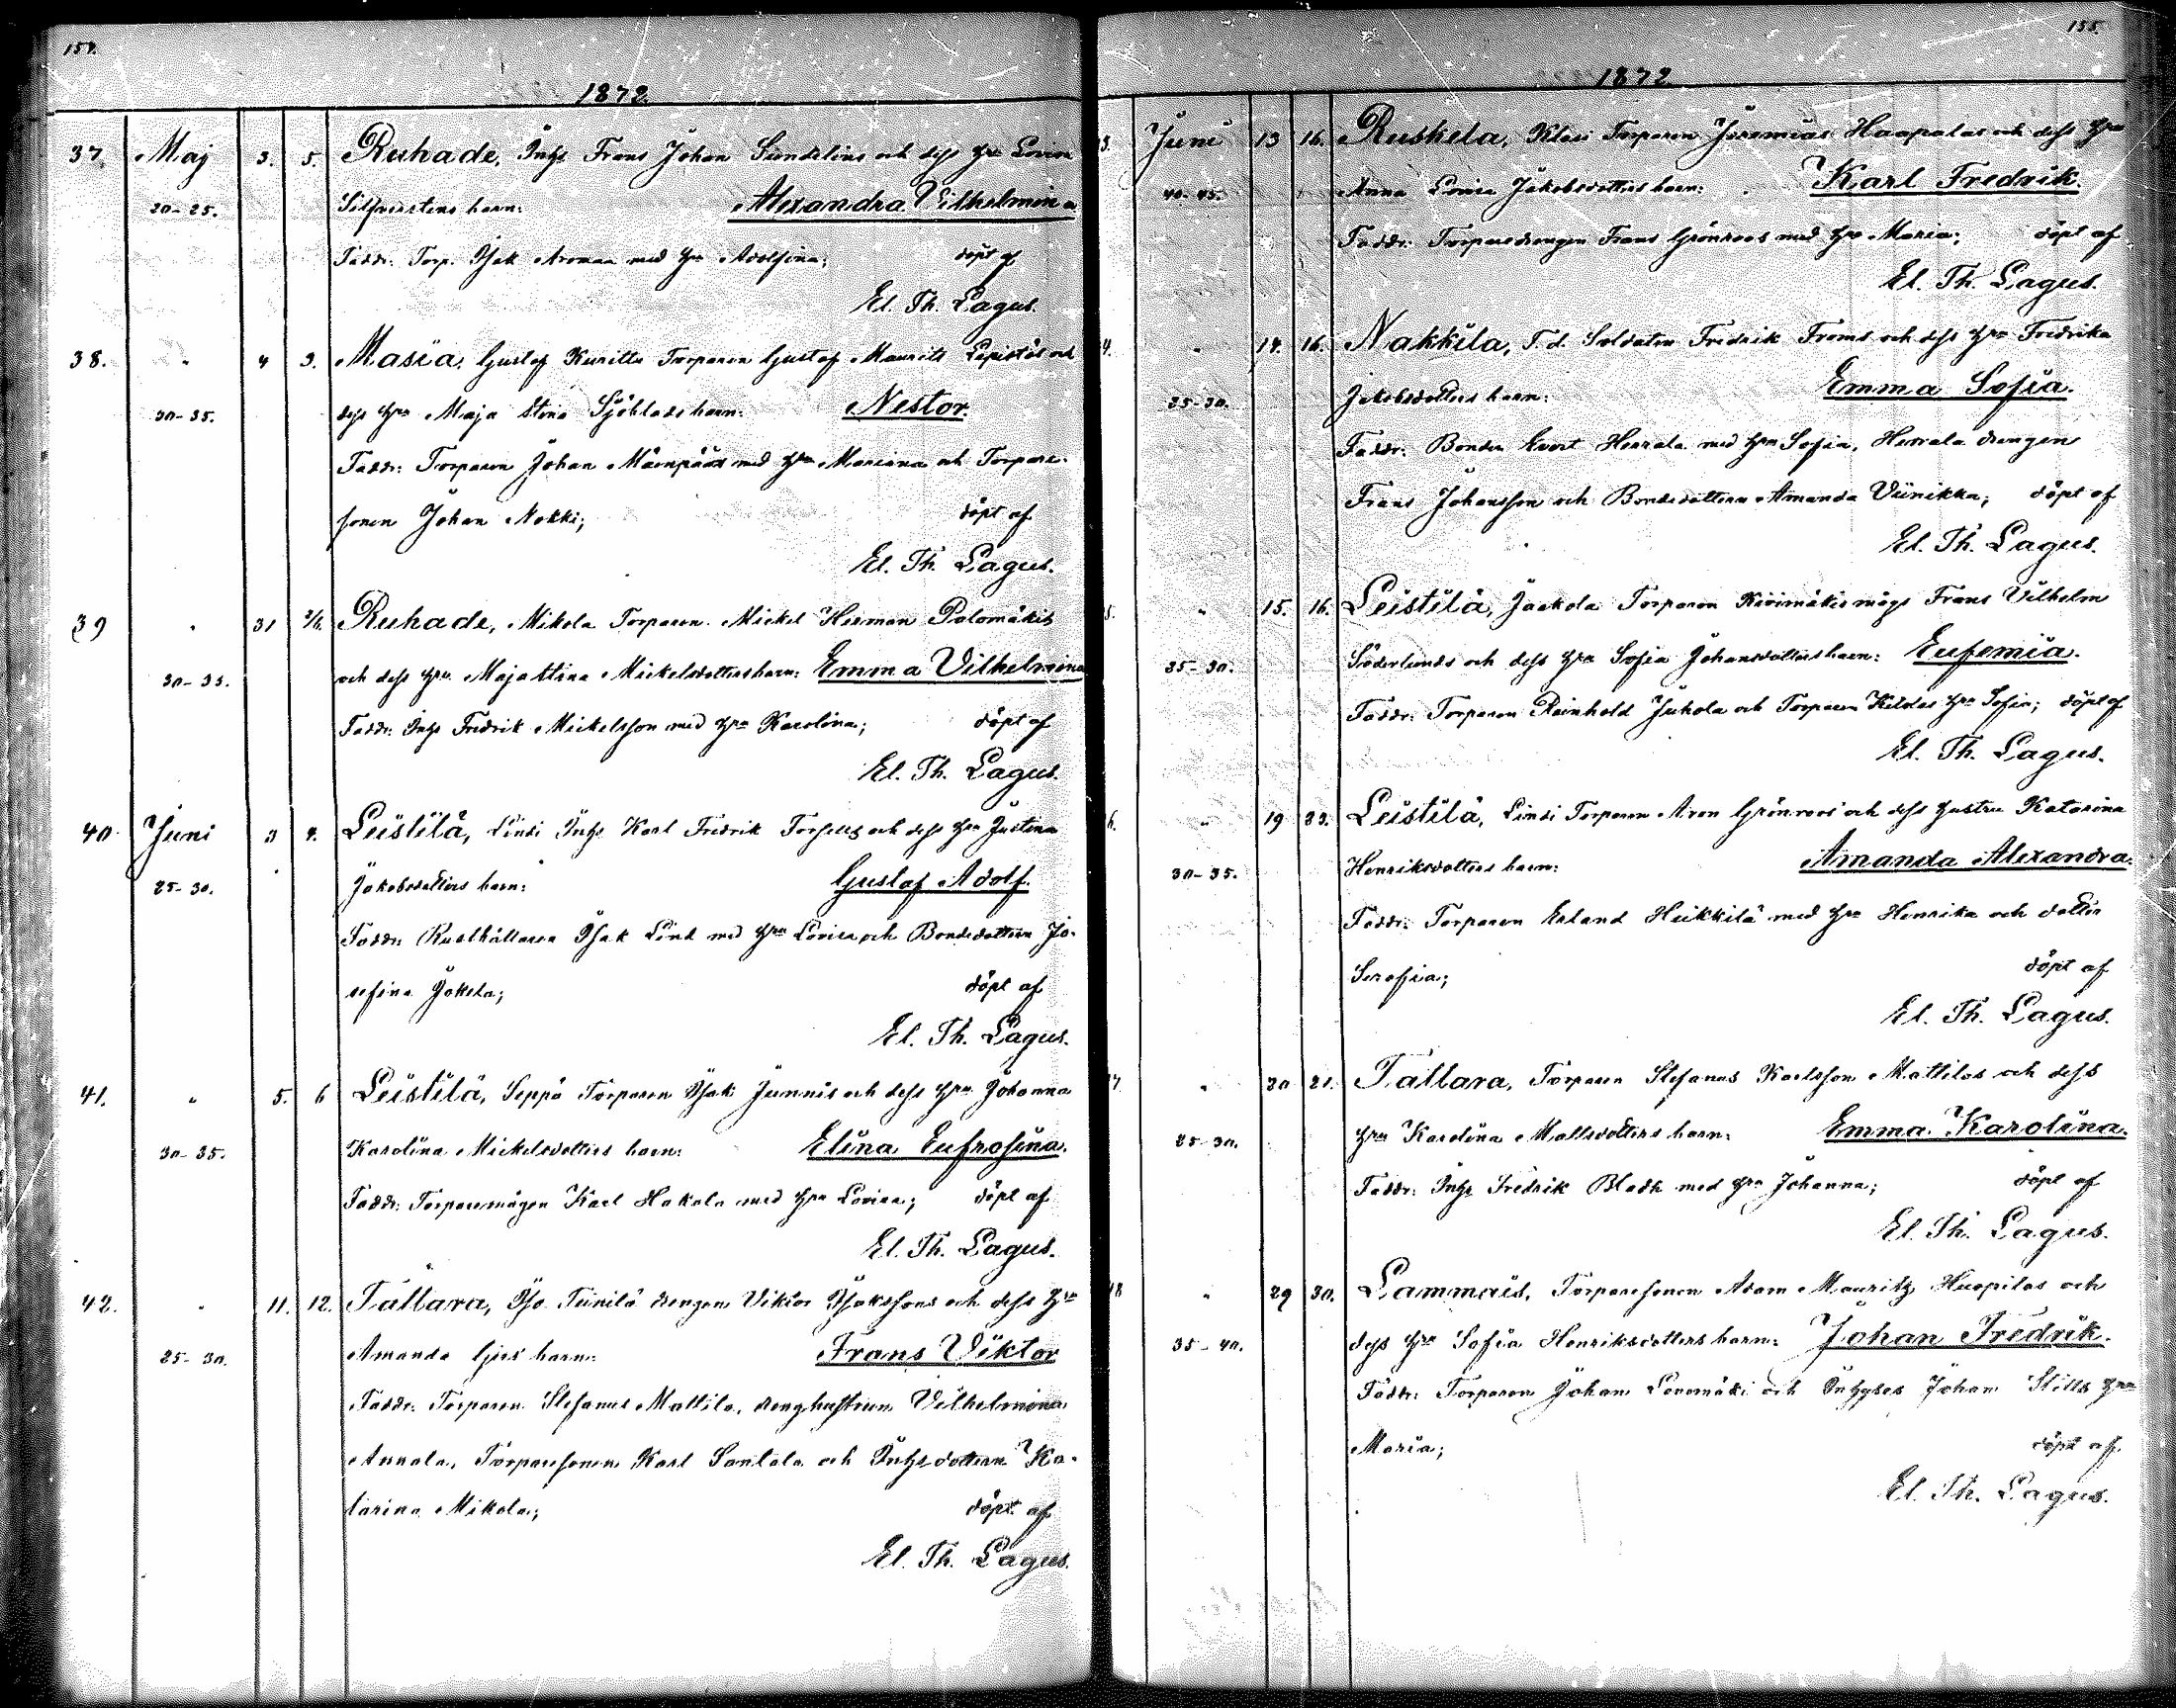 154.
1872.
37. Maj 3. 5. Ruhade, Inhs Frans Johan Sundelins och dess Hru Lovisa
20-25. Silfverstens barn: Alexandra Vilhelmina
Faddr: Torp. Isak Aroman med Hru Adolfina; döpt af
El. Th. Lagus.
38. " 4 5. Masia, Gustaf Kuritta Torparen Gustaf Maurits Lepistös och
30-35. dess Hru Maja Stina Sjöblads barn: Nestor.
Faddr: Torparen Johan Mäenpää med Hru Mariana och Torpare-
sonen Johan Nokki; döpt af
El. Th. Lagus.
39 " 31 2/6. Ruhade, Mikola Torparen Mickel Herman Palomäkis
30-35. och dess Hru Maja Stina Mickelsdotters barn: Emma Vilhelmina
Faddr: Inhs Fredrik Mickelsson med Hru Karolina; döpt af
El. Th. Lagus.
40. Juni 3 4. Leistilä, Linsi Inhs Karl Fredrik Torsells och dess Hru Justina
25-30. Jakobsdotters barn: Gustaf Adolf.
Faddr: Rusthållaren Isak Lind med Hru Lovisa och Bondedottern Jo-
sefina Jokela; döpt af
El. Th. Lagus.
41. " 5. 6 Leistilä, Seppä Torparen Isak Junnis och dess Hru Johanna
30-35. Karolina Mickelsdotters barn: Elina Eufrosina.
Faddr: Torparemågen Karl Hakala med Hru Lovisa; döpt af
El. Th. Lagus.
42. " 11. 12. Tattara, Iso Tiinilä drengen Viktor Isakssons och dess Hru
25-30. Amanda barn: Frans Viktor
Faddr: Torparen Stefanus Mattila, drenghustrun Vilhelmina
Annala, Torparesonen Karl Santala och Inhsdottern Ka-
tarina Mikola; döpt af
El. Th. Lagus.
155.
1872
3. Juni 13 16. Ruskela, Klasi Torparen Jeremias Haapalas och dess Hru
40-45. Anna Lovisa Jakobsdotters barn: Karl Fredrik.
Faddr: Torparedrengen Frans Grönroos med Hru Maria; döpt af
El. Th. Lagus.
4. " 14. 16. Nakkila, F.d. Soldaten Fredrik Froms och dess Hru Fredrika
25-30. Jakobsdotters barn: Emma Sofia.
Faddr: Bonden Evert Herrala med Hru Sofia, Herrala drengen
Frans Johansson och Bondedottern Amanda Viinikka; döpt af
El. Th. Lagus.
5. " 15. 16. Leistilä, Jaakola Torparen Kivimäkis mågs Frans Vilhelm
25-30. Söderlunds och dess Hru Sofia Johansdotters barn: Eufemia.
Faddr: Torparen Reinhold Juhola och Torparen Hru Sofia; döpt af
El. Th. Lagus.
6. " 19 23. Leistilä, Linsi Torparen Aron Grönroos och dess Hustru Katarina
30-35. Henriksdotters barn: Amanda Alexandra.
Faddr: Torparen Erland Heikkilä med Hru Henrika och dotter
Serafia; döpt af
El. Th. Lagus.
7. " 20 21. Tattara, Torparen Stefanus Karlsson Mattilas och dess
25-30. Hru Karolina Mattsdotters barn: Emma Karolina.
Faddr: Inhs Fredrik Bladh med Hru Johanna; döpt af
El. Th. Lagus.
48 " 29 30. Lammais, Torparesonen Adam Mauritz Huopilas och
35-40. dess Hru Sofia Henriksdotters barn: Johan Fredrik.
Faddr: Torparen Johan Lovomäki och Inhyses Johan Hru
Maria; döpt af
El. Th. Lagus.